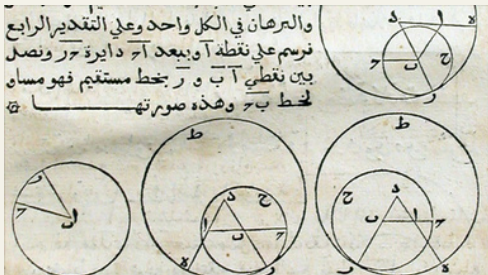 والبرهان في الكل واحد وعلي التقدير الرابع
نرسم علي نقطة آ وببعد آح دايرة حر ونصل
بين نقطتي آ ب و ر بخط مستقيم فهو مساو
لخط بح وهذه صورتها
ا
ه
ب
ح
ج
ر
ط
د
ا
ب
ح
ج
ر
ه
ط
د
ا
ب
ح
ج
ر
ه
ر
ح
ا